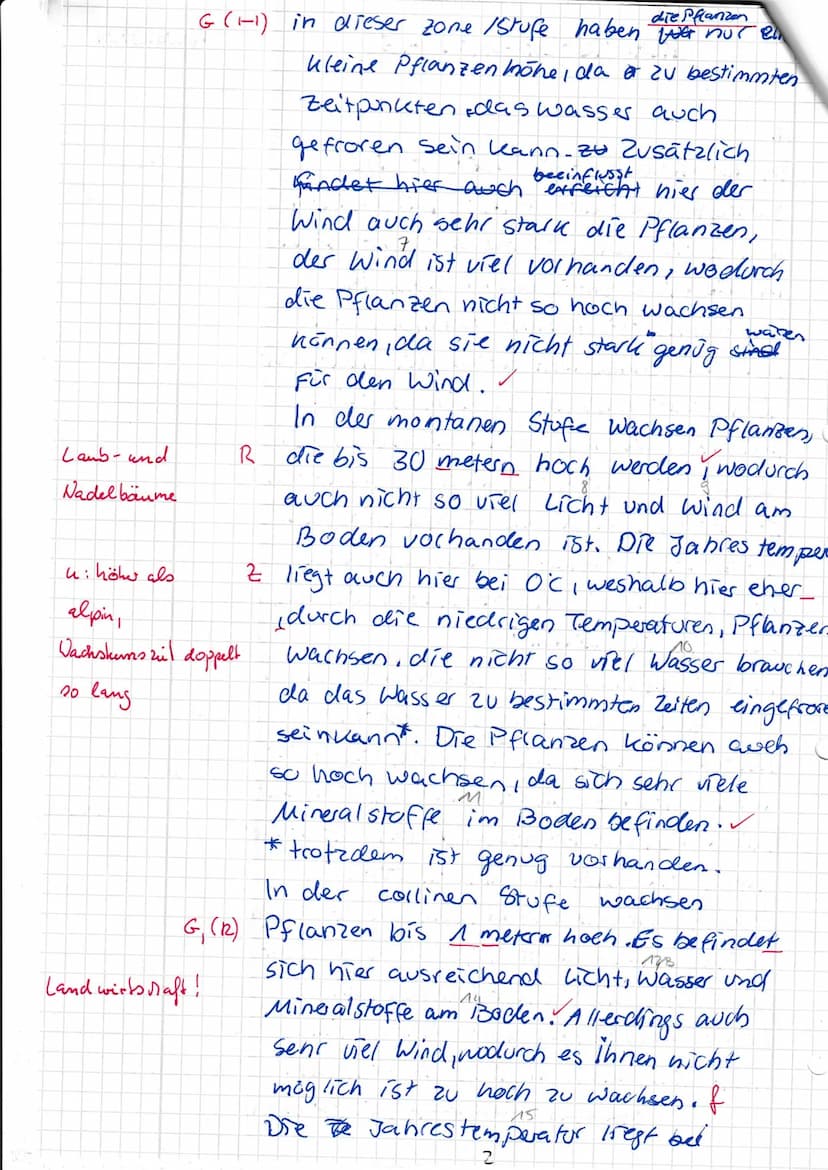 G (1-1) in dieser zone /Stufe haben die Pflanzen nur ein
kleine Pflanzenhöhe, da zu bestimmten
zeitpunkten das wasser auch
gefroren sein kann. zu Zusätzlich
findet hier auch beeinflusst erreicht hier der
Wind auch sehr stark die Pflanzen,
7
der Wind ist viel vorhanden, wodurch
die Pflanzen nicht so hoch wachsen
können, da sie nicht stark genüg sind wären
für den Wind. ✓
In der montanen Stufe wachsen Pflanzen,
Laub- und R die bis 30 metern hoch werden, wodurch
Nadelbäume auch nicht so viel Licht und Wind am
8 9
Boden vorhanden ist. Die Jahrestemper
u: höher als Z liegt auch hier bei 0°C, weshalb hier eher
alpin, , durch die niedrigen Temperaturen, Pflanzen
Wachstumszeit doppelt wachsen, die nicht so viel Wasser brauchen
10
so lang da das Wasser zu bestimmten Zeiten eingefrore
sein kann*. Die Pflanzen können auch
so hoch wachsen, da sich sehr viele
11
Mineralstoffe im Boden befinden. ✓
* trotzdem ist genug vorhanden.
In der collinen Stufe wachsen
G, (R) Pflanzen bis 1 metern hoch. Es befindet
sich hier ausreichend Licht, Wasser und
Landwirtschaft! 14
Mineralstoffe am Boden. ✓ Allerdings auch
sehr viel Wind, wodurch es ihnen nicht
möglich ist zu hoch zu wachsen. f
15
Die Jahrestemperatur liegt bei
2